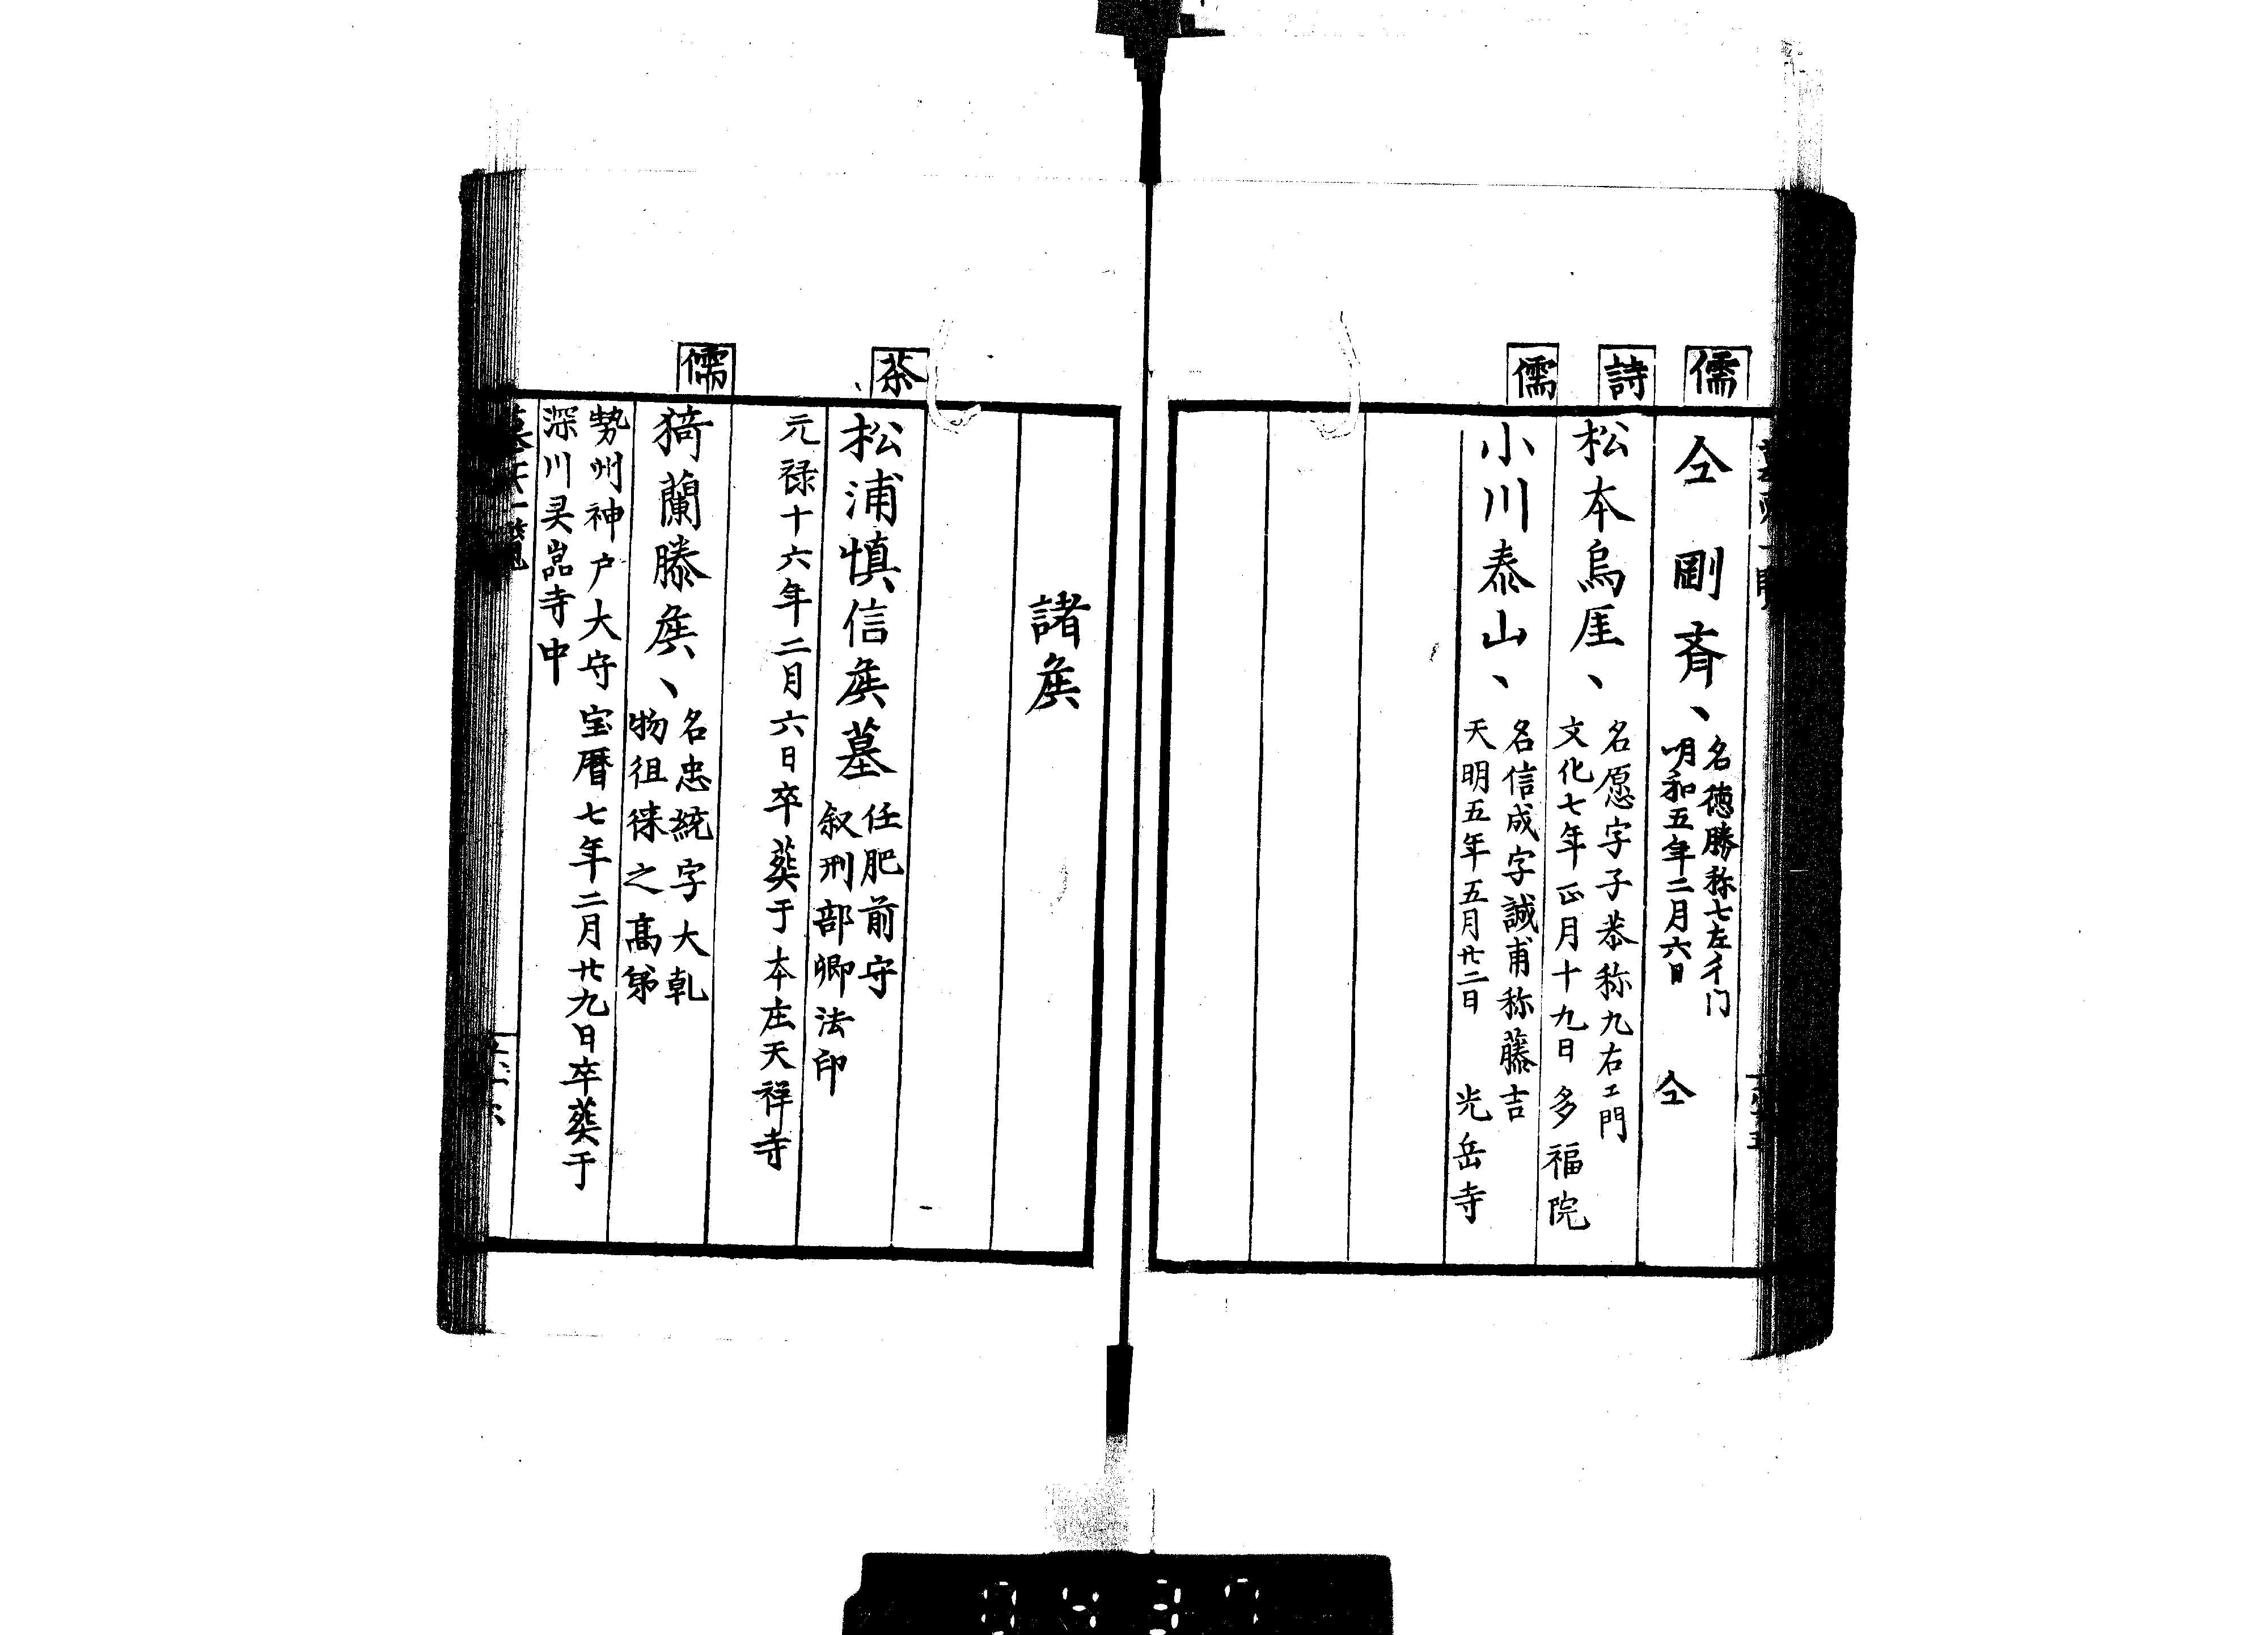 儒
仝剛斎、
名徳勝称七左ヱ门
明和五年二月六日
仝
詩
松本烏厓、
名愿字子恭称九右ヱ門
文化七年正月十九日
多福院
儒
小川泰山、
名信成字誠甫称藤吉
天明五年五月廿二日
光岳寺
諸矦
茶
松浦慎信矦墓
任肥前守
叙刑部卿法印
元禄十六年二月六日卒葬于本庄天祥寺
儒
猗蘭滕矦、
名忠統字大乹
物徂徠之高第
勢州神戸大守宝暦七年二月廿九日卒葬于
深川灵嵓寺中